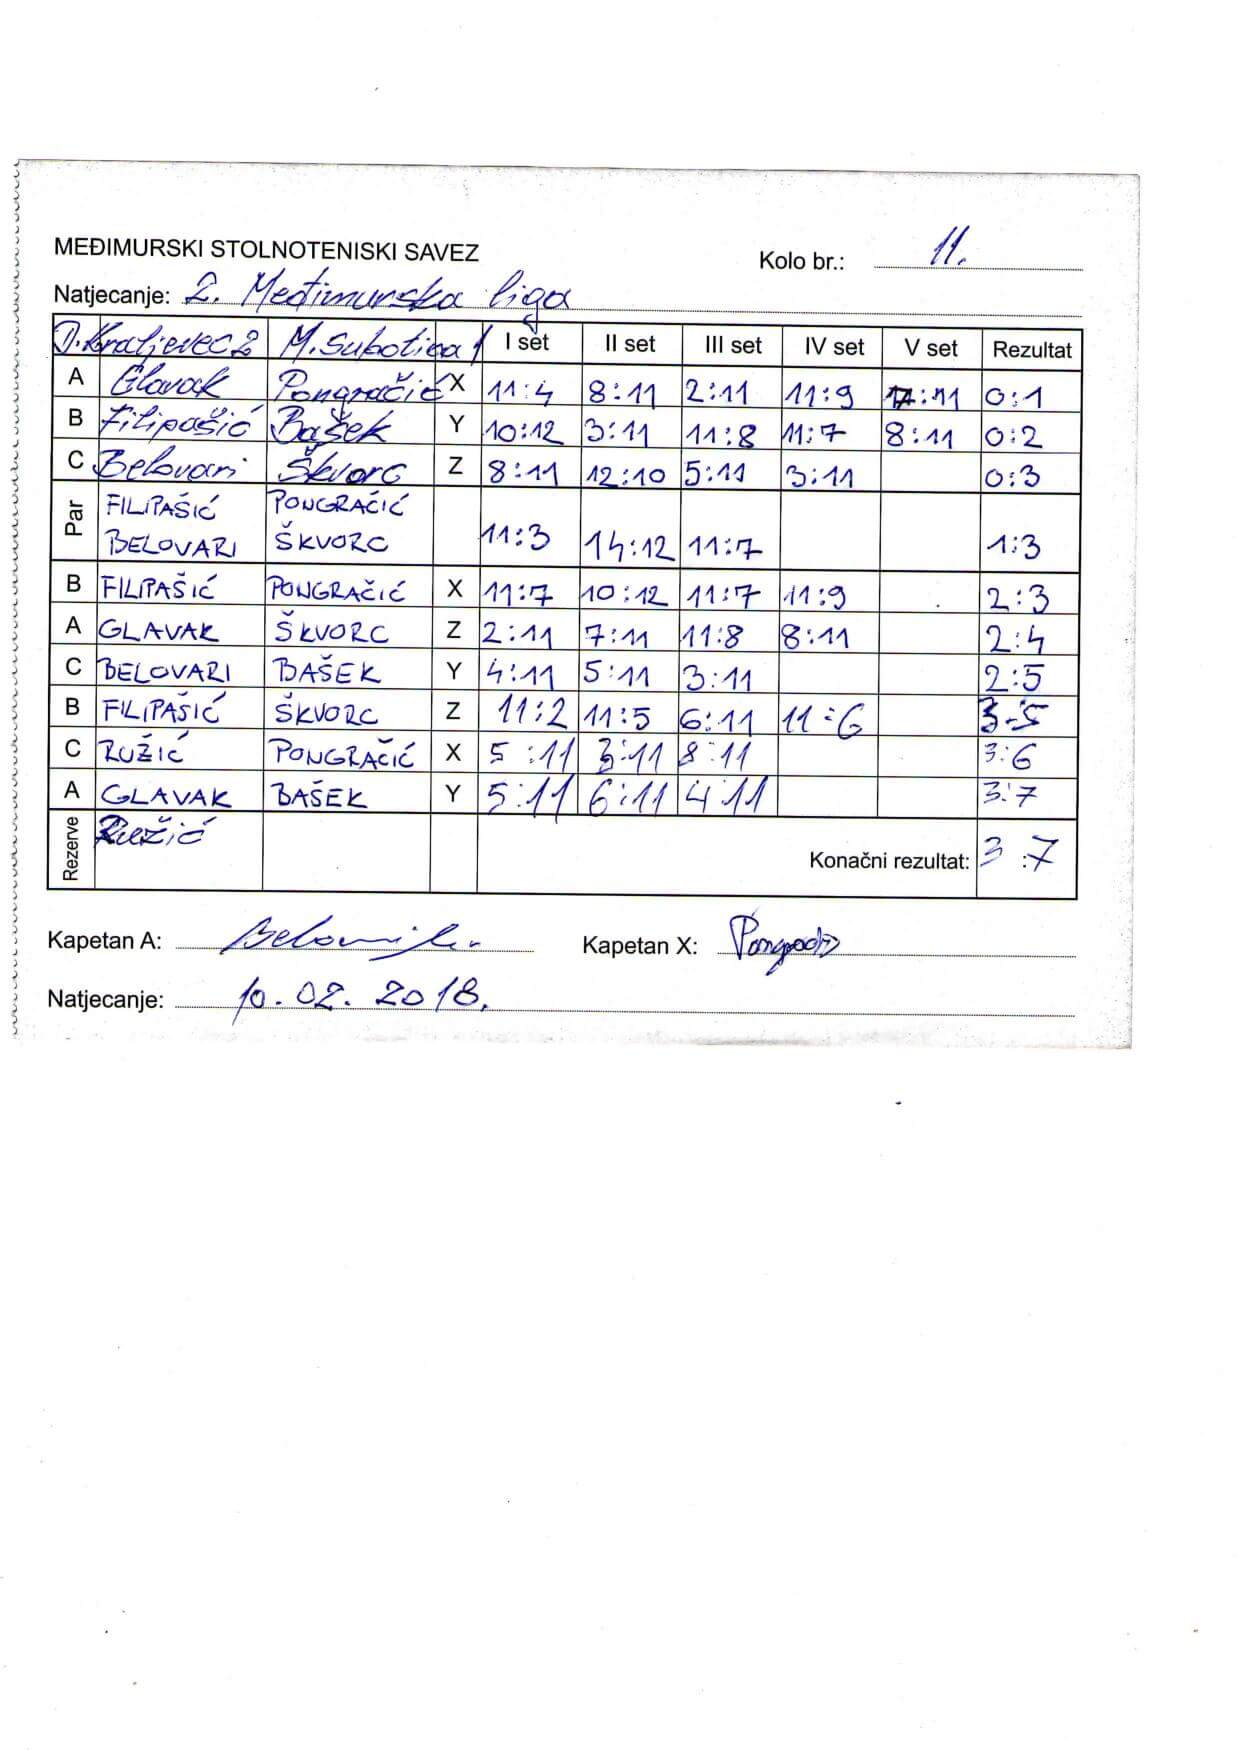 MEĐIMURSKI STOLNOTENISKI SAVEZ
Kolo br.: 11.
Natjecanje: 2. Međimurska liga
D. Kraljevec 2 M. Subotica 1 I set II set III set IV set V set Rezultat
A Glavak Pongračić X 11:4 8:11 2:11 11:9 7:11 0:1
B Filipašić Bašek Y 10:12 3:11 11:8 11:7 8:11 0:2
C Belovari Škvorc Z 8:11 12:10 5:11 3:11 0:3
Par FILIPAŠIĆ PONGRAČIĆ
BELOVARI ŠKVORC 11:3 14:12 11:7 1:3
B FILIPAŠIĆ PONGRAČIĆ X 11:7 10:12 11:7 11:9 2:3
A GLAVAK ŠKVORC Z 2:11 7:11 11:8 8:11 2:4
C BELOVARI BAŠEK Y 4:11 5:11 3:11 2:5
B FILIPAŠIĆ ŠKVORC Z 11:2 11:5 6:11 11:6 3:5
C RUŽIĆ PONGRAČIĆ X 5:11 3:11 8:11 3:6
A GLAVAK BAŠEK Y 5:11 6:11 4:11 3:7
Rezerve Ružić Konačni rezultat: 3:7
Kapetan A: Kapetan X:
Natjecanje: 10.02.2018.